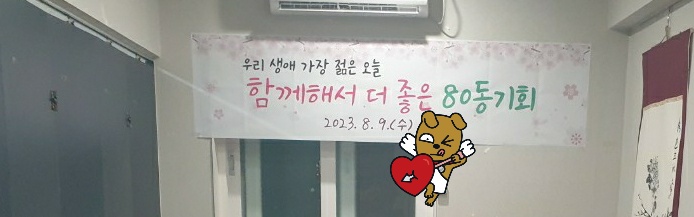 우리 생애 가장 젊은 오늘
함께해서 더 좋은 80동기회
2023. 8. 9.(수)